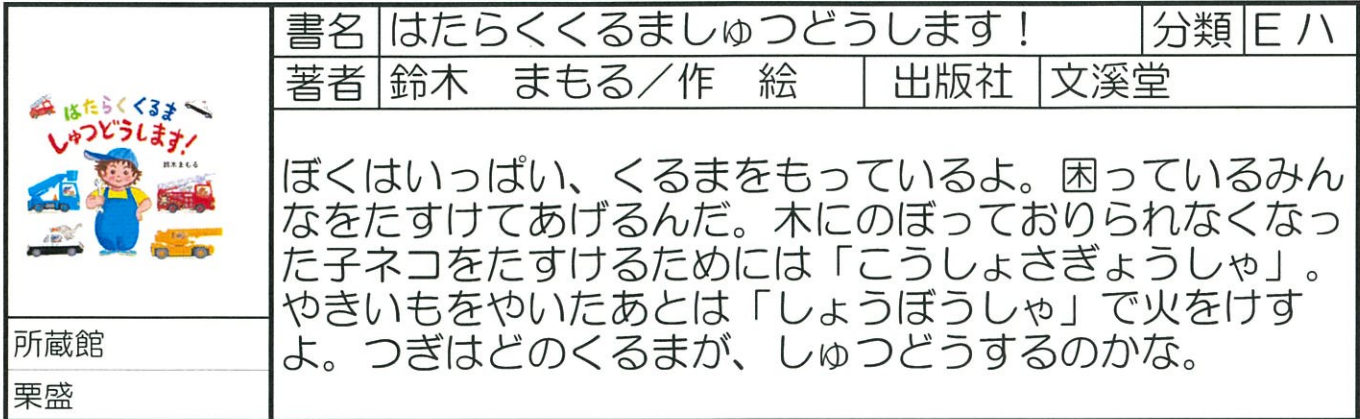 書名 はたらくくるましゅつどうします！ 分類 E ハ
著者 鈴木　まもる／作　絵 出版社 文溪堂
はたらくくるま
しゅつどうします！
鈴木まもる
ぼくはいっぱい、くるまをもっているよ。困っているみん
なをたすけてあげるんだ。木にのぼっておりられなくなっ
た子ネコをたすけるためには「こうしょさぎょうしゃ」。
やきいもをやいたあとは「しょうぼうしゃ」で火をけす
よ。つぎはどのくるまが、しゅつどうするのかな。
所蔵館
栗盛